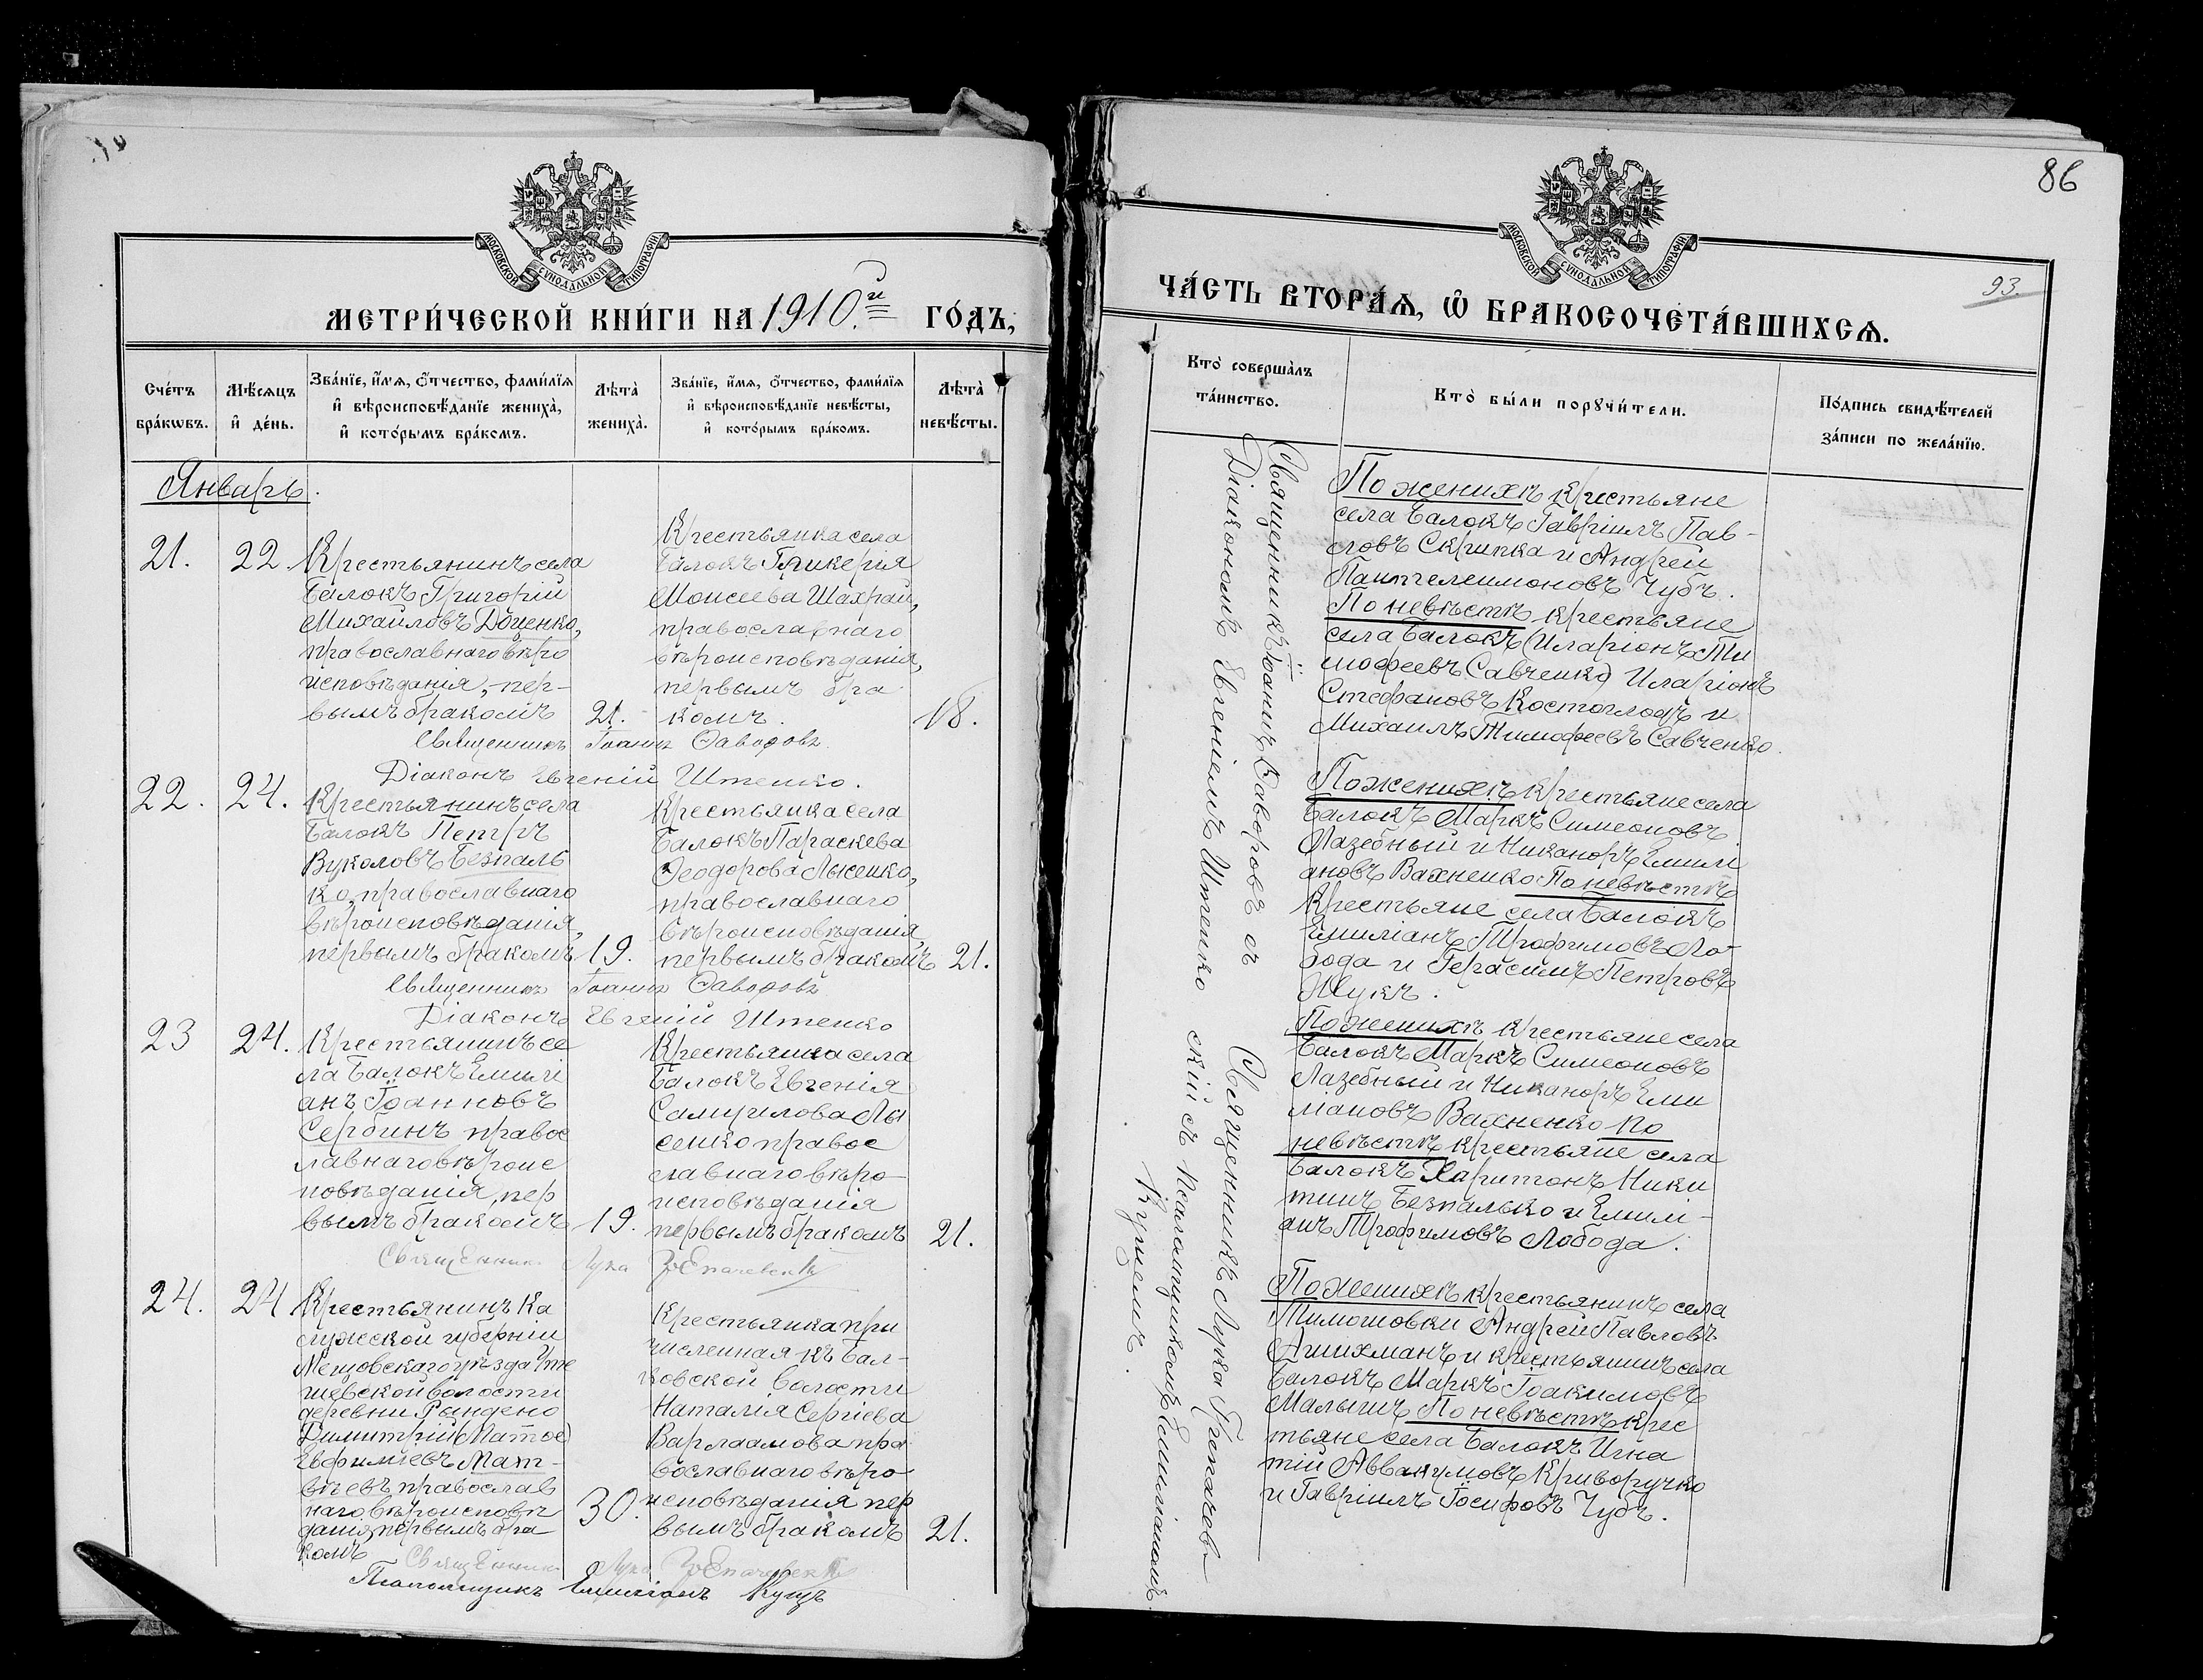 МОСКОВСКОЙ СѴНОДАЛЬНОЙ ТИПОГРАФІИ
МЕТРИ́ЧЕСКОЙ КНИ́ГИ НА 1910.й ГО́ДЪ,
Сче́тъ бра́кѡвъ.
Мѣ́сѧцъ и҆ де́нь.
Зва́нїе, и҆́мѧ, ѻ҆́тчество, фами́лїѧ
и҆ вѣроисповѣ́данїе жениха̀,
и҆ кото́рымъ бра́комъ.
Лѣта̀ жениха̀.
Зва́нїе, и҆́мѧ, ѻ҆́тчество, фами́лїѧ
и҆ вѣроисповѣ́данїе невѣ́сты,
и҆ кото́рымъ бра́комъ.
Лѣта̀ невѣ́сты.
Январь.
21.
22
Крестьянинъ села
Балокъ Григорій
Михайловъ Доценко,
православнаго вѣро
исповѣданія, пер-
вымъ бракомъ
21.
Крестьянка села
Балокъ Гликерія
Моисеева Шахрай,
православнаго
вѣроисповѣданія,
первымъ бра
комъ.
18.
Священникъ Іоаннъ
Діаконъ Евгеній Штепко.
22.
24.
Крестьянинъ села
Балокъ Петръ
Вуколовъ Безпаль
ко, православнаго
вѣроисповѣданія,
первымъ бракомъ
19.
Крестьянка села
Балокъ Параскева
Ѳеодорова Лысенко,
православнаго
вѣроисповѣданія
первымъ бракомъ
21.
Священникъ Іоаннъ
Діаконъ Евгеній Штепко
23
24.
Крестьянинъ се
ла Балокъ Емилі
анъ Іоанновъ
Сербинъ правос
лавнаго вѣроис
повѣданія, пер
вымъ бракомъ
19.
Крестьянка села
Балокъ Евгенія
Самуилова Лы
сенко правос
лавнаго вѣро-
исповѣданія
первымъ бракомъ
21.
Священникъ Лука
24.
24
Крестьянинъ Ка
лужской губерніи
Мещовскаго уѣзда
волости
деревни
Димитрій
Евфиміевъ Мат-
вѣевъ православ
наго вѣроисповѣ
данія, первымъ бра
комъ
30.
Крестьянка при
численная къ Бал-
ковской волости
Наталія Сергіева
Варлаамова пра
вославнаго вѣро-
исповѣданія пер
вымъ бракомъ
21.
Священникъ Лука
Псаломщикъ Емиліанъ Кущъ
86
МОСКОВСКОЙ СѴНОДАЛЬНОЙ ТИПОГРАФІИ
93.
ЧА́СТЬ ВТОРА́Ѧ, Ѽ БРАКОСОЧЕТА́ВШИХСѦ.
Кто̀ соверша́лъ
та́инство.
Кто̀ бы́ли порꙋчи́тели.
По́дпись свидѣ́телей
за́писи по жела́нїю.
Священникъ Іоаннъ съ
Діакономъ Евгеніемъ Штепко
Священникъ Лука
скій съ Псаломщикомъ Емиліаномъ
Кущемъ.
По женихѣ крестьяне
села Балокъ Гавріилъ Пав-
ловъ Скрипка и Андрей
Пантелеимоновъ Чубъ.
По невѣстѣ крестьяне
села Балокъ (Иларіонъ Ти
мофеевъ Савченко) Иларіонъ
Стефановъ Костоглодъ и
Михаилъ Тимофеевъ Савченко.
По женихѣ крестьяне села
Балокъ Маркъ Симеоновъ
Лазебный и Никаноръ Емилі
ановъ Вахненко По невѣстѣ
крестьяне села Балокъ
Емиліанъ Трофимовъ Ло-
бода и Герасимъ Петровъ
Жукъ.
По женихѣ крестьяне села
Балокъ Маркъ Симеоновъ
Лазебный и Никаноръ Еми
ліановъ Вахненко По
невѣстѣ крестьяне села
Балокъ Харитонъ Ники
тинъ Безпалько и Емили-
анъ Трофимовъ Лобода.
По женихѣ крестьянинъ села
Тимошовки Андрей Павловъ
Ашихманъ и крестьянинъ села
Балокъ Маркъ Іоакимовъ
Малышъ По невѣстѣ крес
тьяне села Балокъ Игна
тій Аввакумовъ Криворучко
и Гавріилъ Іосифовъ Чубъ.